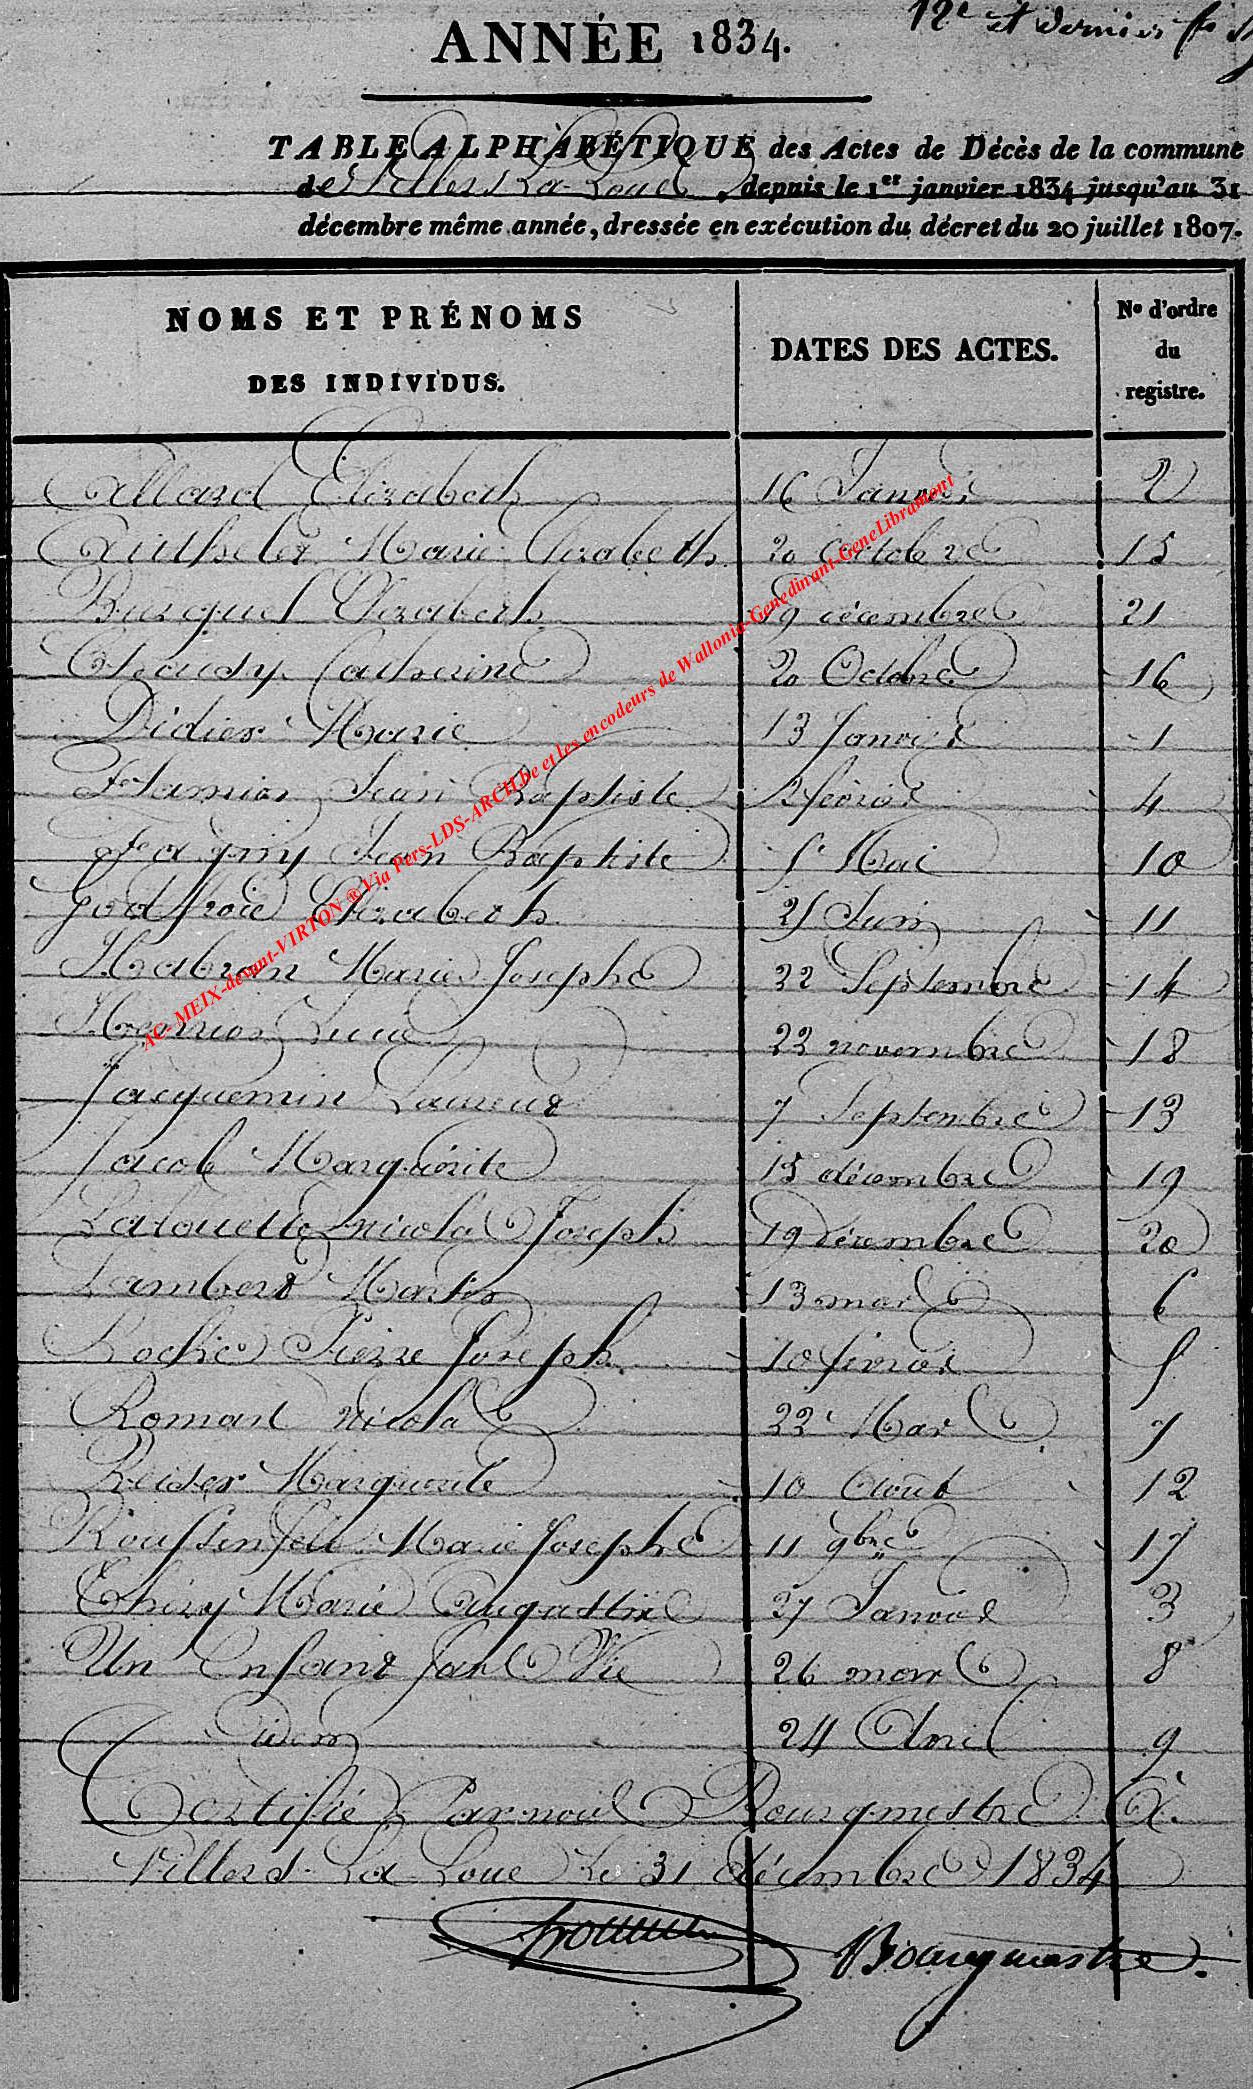 12e et dernier
ANNÉE 1834.
TABLE ALPHABÉTIQUE des Actes de Décès de la commune
de Villers La Loue, depuis le 1er janvier 1834 jusqu'au 31
décembre même année, dressée en exécution du décret du 20 juillet 1807.
NOMS ET PRÉNOMS DES INDIVIDUS. DATES DES ACTES. No d'ordre du registre.
Allard Elizabeth 16 Janvier 2
Marie Elizabeth 20 Octobre 15
Busquel Elizabeth 19 décembre 21
Catherine 20 Octobre 16
Didier Marie 13 Janvier 1
Flamion Jean Baptiste 2 février 4
Fagny Jean Baptiste 5 Mai 10
Godfroid Elizabeth 25 Juin 11
Habran Marie Josephe 22 Septembre 14
Henrion Lucie 22 novembre 18
Jacquemin Laurent 7 Septembre 13
Jacob Marguérite 15 décembre 19
Lalouette nicolas Joseph 19 décembre 20
Lambert Martin 13 mars 6
Pierre Joseph 10 février 5
Romant nicolas 22 Mars 7
Reiser Marguerite 10 Août 12
Roussenfeld Marie Josephe 11 9bre 17
Thiry Marie Augustine 27 Janvier 3
Un Enfant sans Vie 26 mars 8
idem 24 Avril 9
Certifié Par nous Bourgmestre à
Villers La Loue Le 31 décembre 1834
Bourgmestre.
AC- MEIX-devant-VIRTON ® Via Pers-LDS-ARCH.be et les encodeurs de Wallonia-Genedinant-GeneLibramont